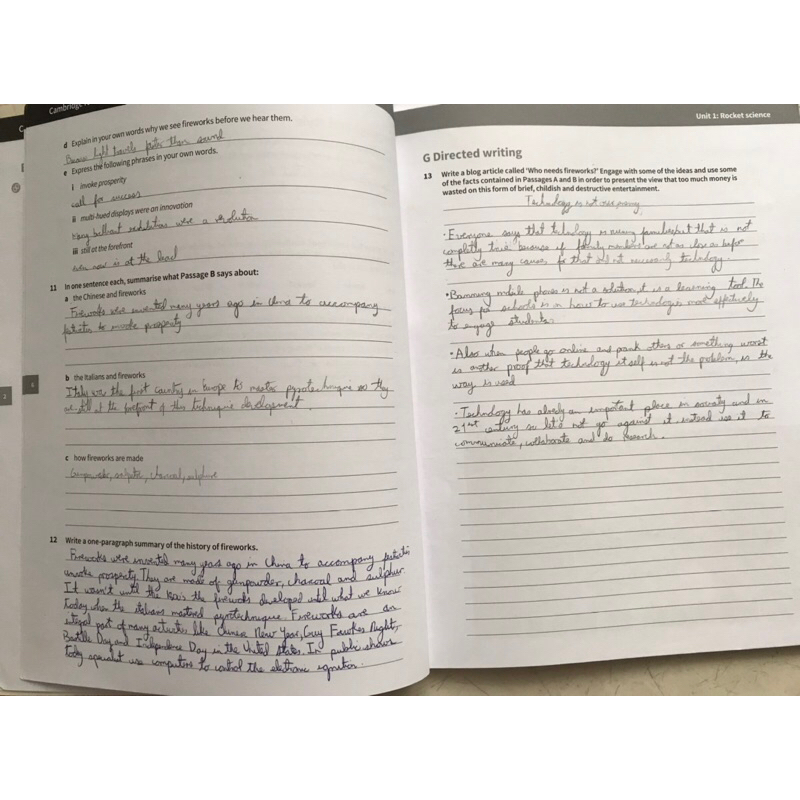 Cambridge
d Explain in your own words why we see fireworks before we hear them.
Because light travels faster than sound
e Express the following phrases in your own words.
i invoke prosperity
call for success
ii multi-hued displays were an innovation
brilliant were a revolution
iii still at the forefront
even now is at the lead
11 In one sentence each, summarise what Passage B says about:
a the Chinese and fireworks
Fireworks were invented many years ago in China to accompany
festivities to invoke prosperity
b the Italians and fireworks
Italy was the first country in Europe to master pyrotechnique so they
are still at the forefront of this technique development.
c how fireworks are made
Gunpowder, charcoal, sulphur
12 Write a one-paragraph summary of the history of fireworks.
Fireworks were invented many years ago in China to accompany
invoke prosperity. They are made of gunpowder, charcoal and sulphur
It wasn't until the fireworks developed until what we know
today when the italians mastered pyrotechnique. Fireworks are an
integral part of many activities like Chinese New Year, Guy Fawkes Night,
Bastille Day and Independence Day in the United States. In public shows
today specialist use computers to control the electronic ignition.
6
Unit 1: Rocket science
G Directed writing
13 Write a blog article called 'Who needs fireworks?' Engage with some of the ideas and use some
of the facts contained in Passages A and B in order to present the view that too much money is
wasted on this form of brief, childish and destructive entertainment.
Technology is not our enemy
• Everyone say that technology is families but that is not
completly true because if family members are not as close as before
there are many causes for that and not necessarily technology.
• Bannning mobile phones is not a solution, it is a learning tool. The
focus for schools is on how to use technologies more effectively
to engage students.
• Also when people go online and prank others or something worst
is another proof that technology itself is not the problem, is the
way is used
• Technology has already an important place in society and in
21st century so let's not go against it instead use it to
communicate, collaborate and do research.